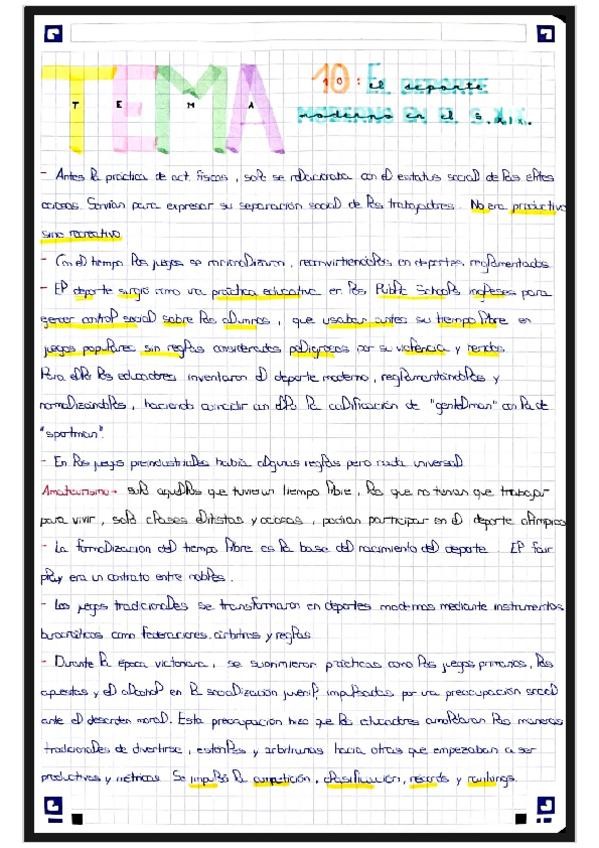 TEMA
T E M A
10: El deporte
moderno en el s.XIX.
- Antes la práctica de act. físicas, solo se relacionaba con el estatus social de las élites
ociosas. Servían para expresar su separación social de los trabajadores. No era productivo
sino recreativo
- Con el tiempo los juegos se racionalizaron, reconvirtiéndolos en deportes reglamentados
- El deporte surgió como una práctica educativa en las Public Schools inglesas para
ejercer control social sobre los alumnos, que usaban antes su tiempo libre en
juegos populares sin reglas considerados peligrosos por su violencia y
Para ello los educadores inventaron el deporte moderno, reglamentándolos y
normalizándolos, haciendo coincidir con ello la calificación de "gentleman" con la de
"sportman".
- En los juegos preindustriales había algunas reglas pero nada universal
Amateurismo → solo aquellos que tuvieran tiempo libre, los que no tenían que trabajar
para vivir, solo clases elitistas y ociosas, podían participar en el deporte olímpico
- La formalización del tiempo libre es la base del nacimiento del deporte. El fair
play era un contrato entre nobles.
- Los juegos tradicionales se transformaron en deportes modernos mediante instrumentos
burocráticos como federaciones, árbitros y reglas
- Durante la época victoriana, se suprimieron prácticas como los juegos primarios, las
apuestas y el alcohol en la socialización juvenil, impulsadas por una preocupación social
ante el desorden moral. Esta preocupación hizo que los educadores amoldaran las maneras
tradicionales de divertirse, estériles y arbitrarias hacia otras que empezaban a ser
productivas y métricas. Se impulsó la competición, clasificación, récords y rankings.